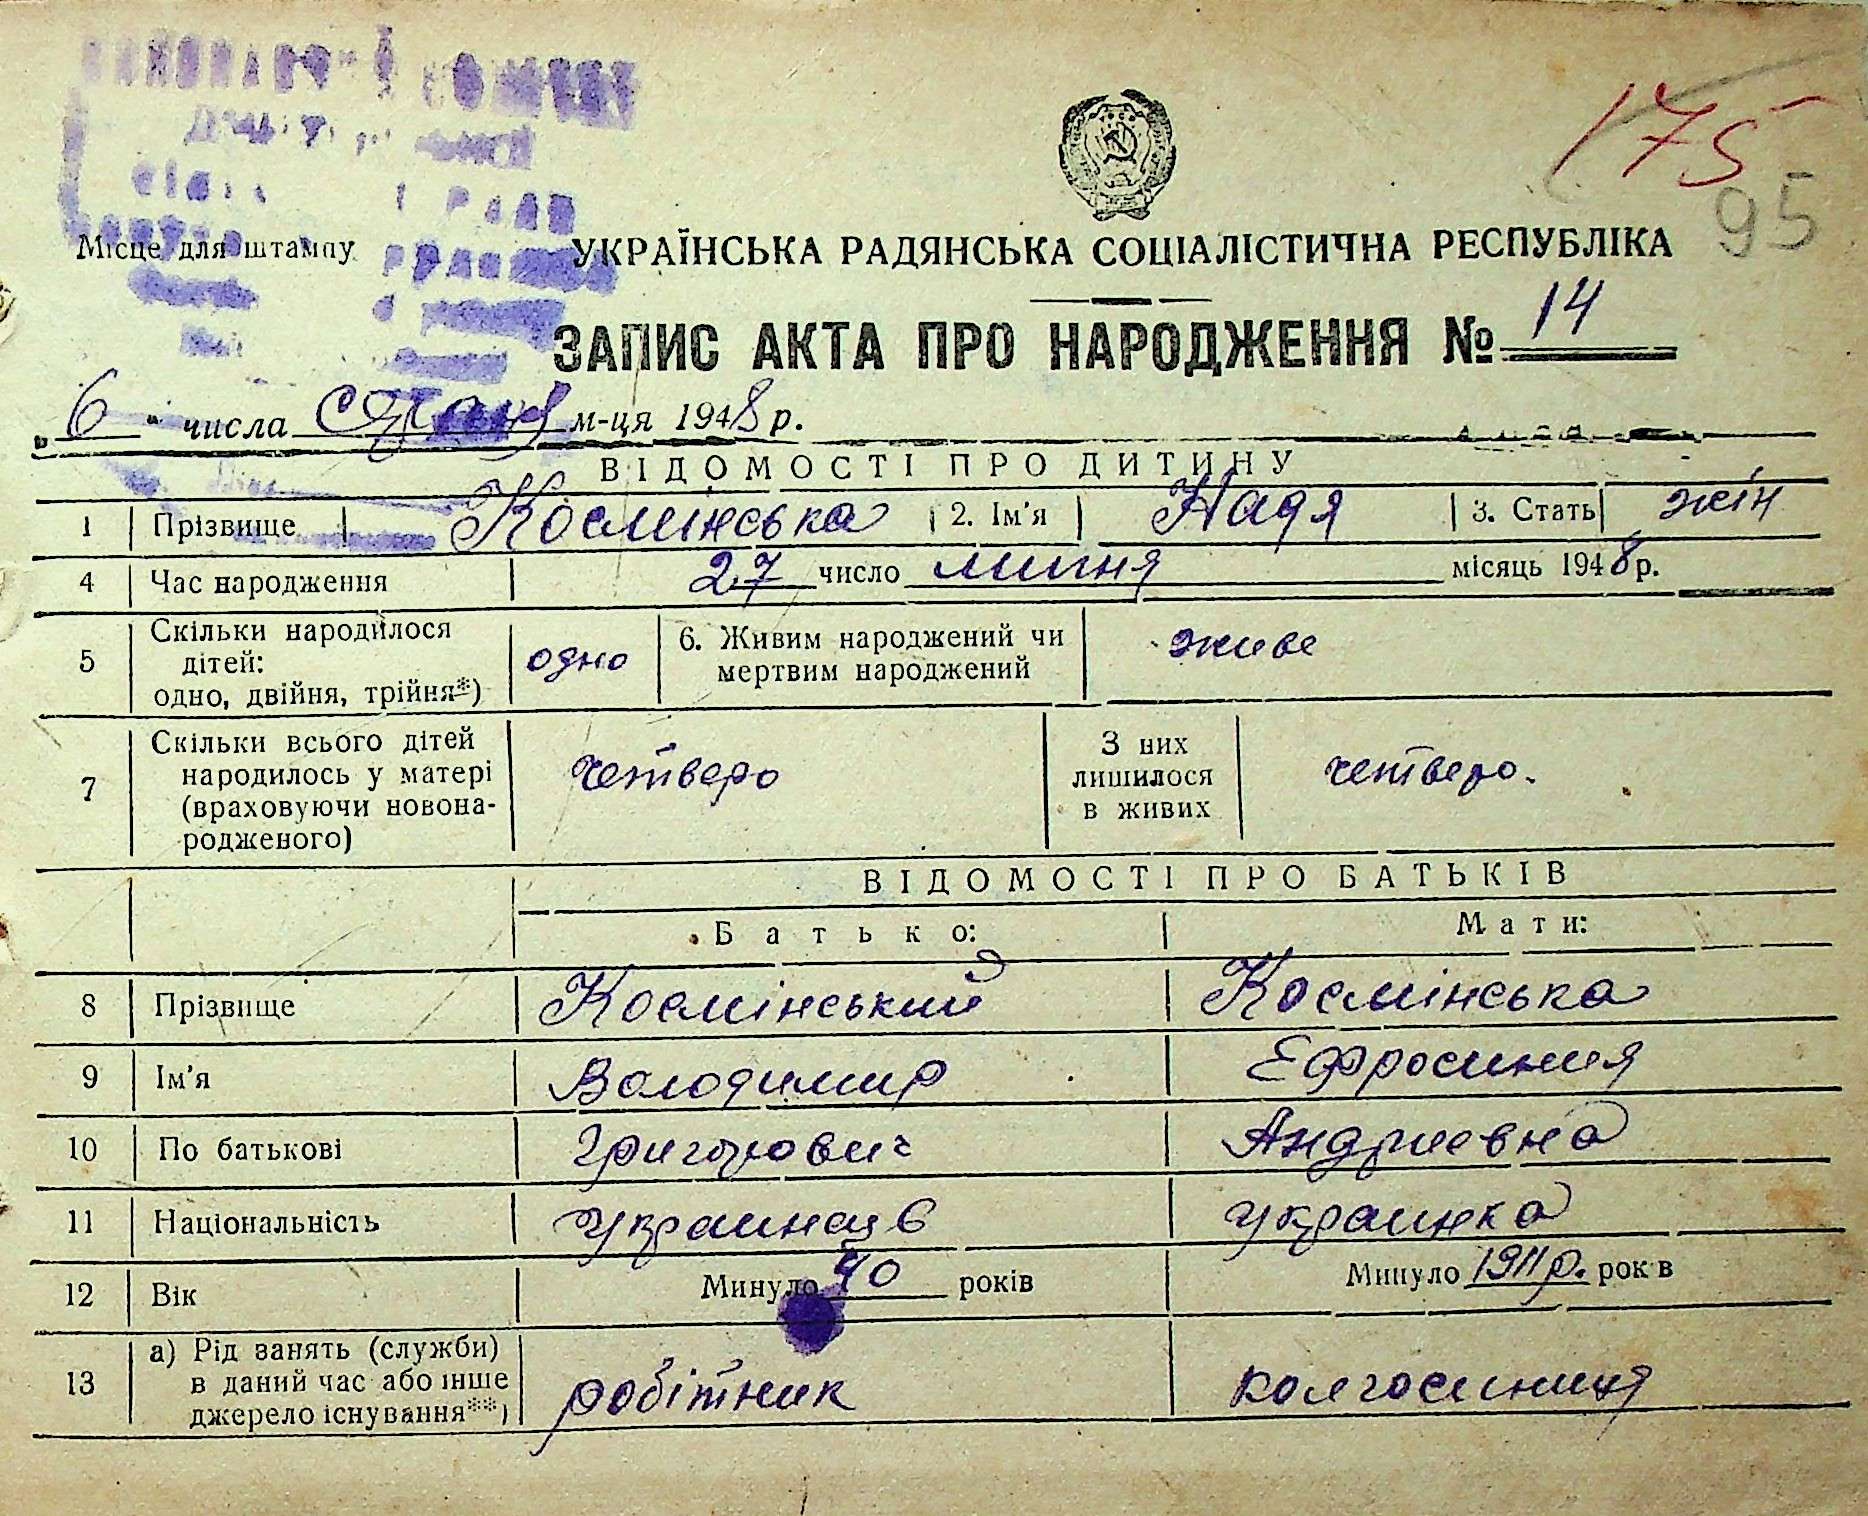 175
95
Місце для штампу
УКРАЇНСЬКА РАДЯНСЬКА СОЦІАЛІСТИЧНА РЕСПУБЛІКА
ЗАПИС АКТА ПРО НАРОДЖЕННЯ № 14
„6" числа серпня м-ця 1948 р.
ВІДОМОСТІ ПРО ДИТИНУ
1 Прізвище Космінська 2. Ім'я Надя 3. Стать жін
4 Час народження 27 число липня місяць 1948 р.
5 Скільки народилося дітей: одно, двійня, трійня*) одно 6. Живим народжений чи мертвим народжений живе
7 Скільки всього дітей народилось у матері (враховуючи новонародженого) четверо З них лишилося в живих четверо.
ВІДОМОСТІ ПРО БАТЬКІВ
Батько: Мати:
8 Прізвище Космінський Космінська
9 Ім'я Володимир Ефросиния
10 По батькові Григорович Андриевна
11 Національність украинець украинка
12 Вік Минуло 40 років Минуло 1911 р. років
13 а) Рід занять (служби) в даний час або інше джерело існування**) робітник колгоспниця